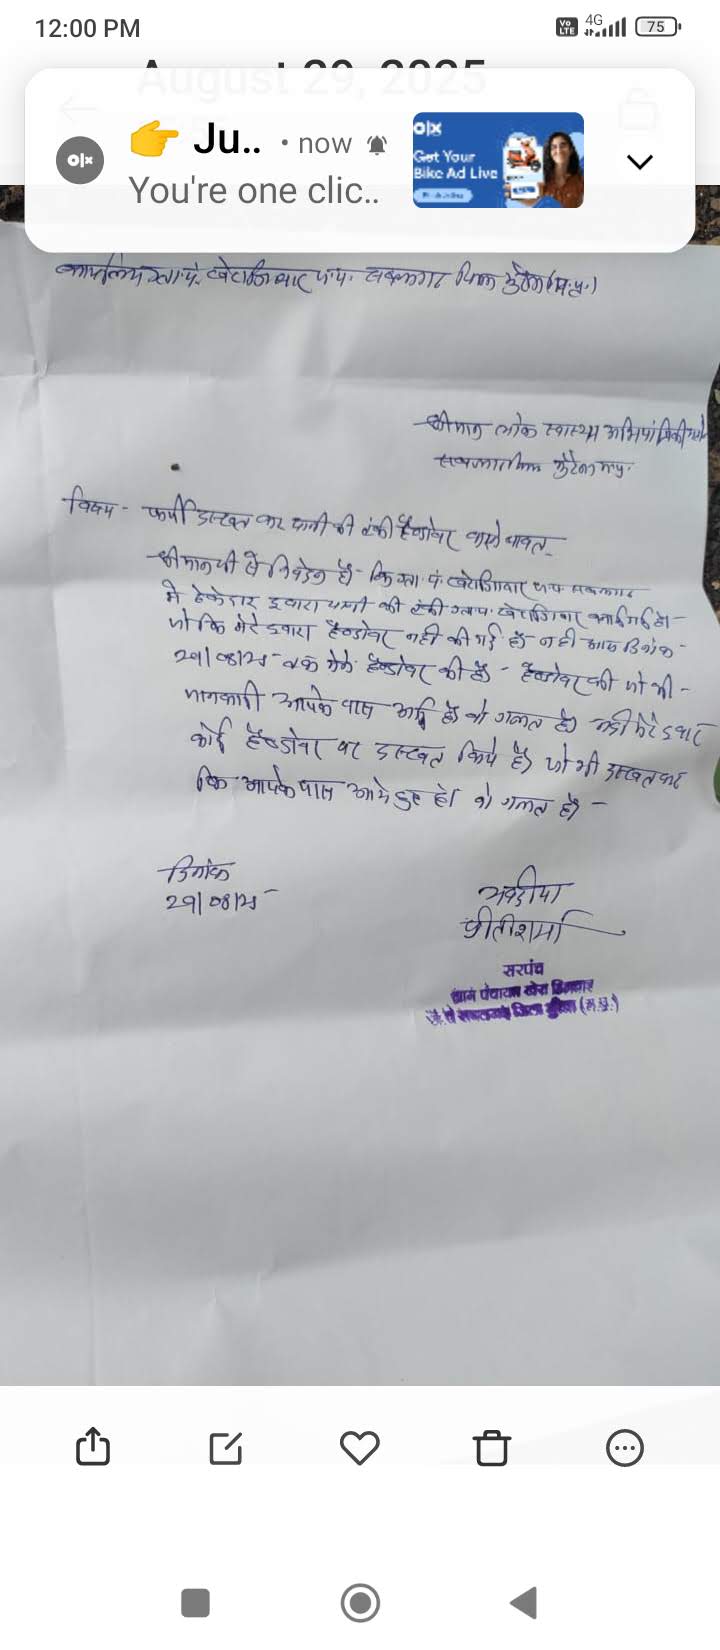 12:00 PM
Vo LTE 4G 75
August 29, 2025
olx 👉 Ju.. • now
You're one clic..
olx
Get Your
Bike Ad Live
कार्यालय ग्रा.पं. खेराजिवार ज.प. सबलगढ जिला मुरैना (म.प्र.)
श्रीमान लोक स्वास्थ्य अभियांत्रिकी
सबलगढ जिला मुरैना म.प्र.
विषय - फर्जी दस्खत कर पानी की टंकी हैण्डोवर करने बावत
श्रीमान जी से निवेदन है- कि ग्रा. पं. खेराजिवार ज.प. सबलगढ
मे ठेकेदार द्वारा पानी की टंकी ग्रा.पं. खेराजिवार बनाई गई है।-
जो कि मेरे द्वारा हैण्डोवर नही की गई है। न ही आज दिनांक-
29/08/25 - तक मेने हैण्डोवर की है - हैण्डोवर की जो भी -
जानकारी आपके पास आई है वो गलत है। नही मेरे द्वारा
कोई हैण्डोवर पर दस्खत किये है। जो भी दस्खत कर
कि आपके पास आये हुए है। वो गलत है। -
दिनांक
29/08/25
भवदीया
प्रीति शर्मा
सरपंच
ग्राम पंचायत खेरा
जिला (म.प्र.)